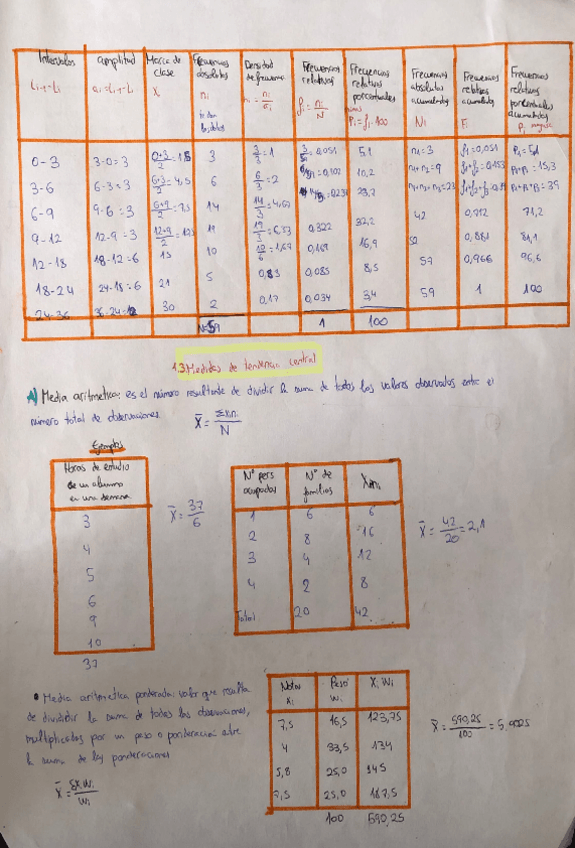 Intervalos amplitud Marca de clase Frecuencias absolutas Densidad de frecuencia Frecuencias relativas Frecuencias relativas porcentuales Frecuencias absolutas acumuladas Frecuencias relativas acumuladas Frecuencias relativas porcentuales acumuladas
Li-1 - Li ai = Li - Li-1 X ni hi = ni/ai fi = ni/N Pi = fi · 100 Ni Fi Pi
0-3 3-0=3 (0+3)/2=1,5 3 3/3=1 0,051 5,1 n1=3 f1=0,051 P1=5,1
3-6 6-3=3 4,5 6 6/3=2 0,102 10,2 n1+n2=9 f1+f2=0,153 P1+P2=15,3
6-9 9-6=3 (6+9)/2=7,5 14 14/3=4,67 23,7 n1+n2+n3=23 P1+P2+P3=39
9-12 12-9=3 19 19/3=6,33 0,322 32,2 42 0,712 71,2
12-18 18-12=6 15 10 10/6=1,67 0,169 16,9 52 0,881
18-24 24-18=6 21 5 0,83 0,085 8,5 57 0,966 96,6
24-36 30 2 0,17 0,034 3,4 59 1 100
N=59 1 100
1.3 Medidas de tendencia central
A) Media aritmetica: es el número resultante de dividir la suma de todos los valores observados entre el
número total de observaciones. X̄ = Σxini/N
Ejemplos
Horas de estudio
de un alumno
en una semana
3
4
5
6
9
10
37
X̄ = 37/6
Nº pers ocupadas Nº de familias Xini
1 6 6
2 8 16
3 4 12
4 2 8
Total 20 42
X̄ = 42/20 = 2,1
• Media aritmetica ponderada: valor que resulta
de dividir la suma de todas las observaciones,
multiplicadas por un peso o ponderación entre
la suma de las ponderaciones
X̄ = ΣXiWi/Wi
Notas Xi Peso Wi Xi Wi
7,5 16,5 123,75
4 33,5 134
5,8 25,0 145
7,5 25,0 187,5
100 590,25
X̄ = 590,25/100 = 5,9025